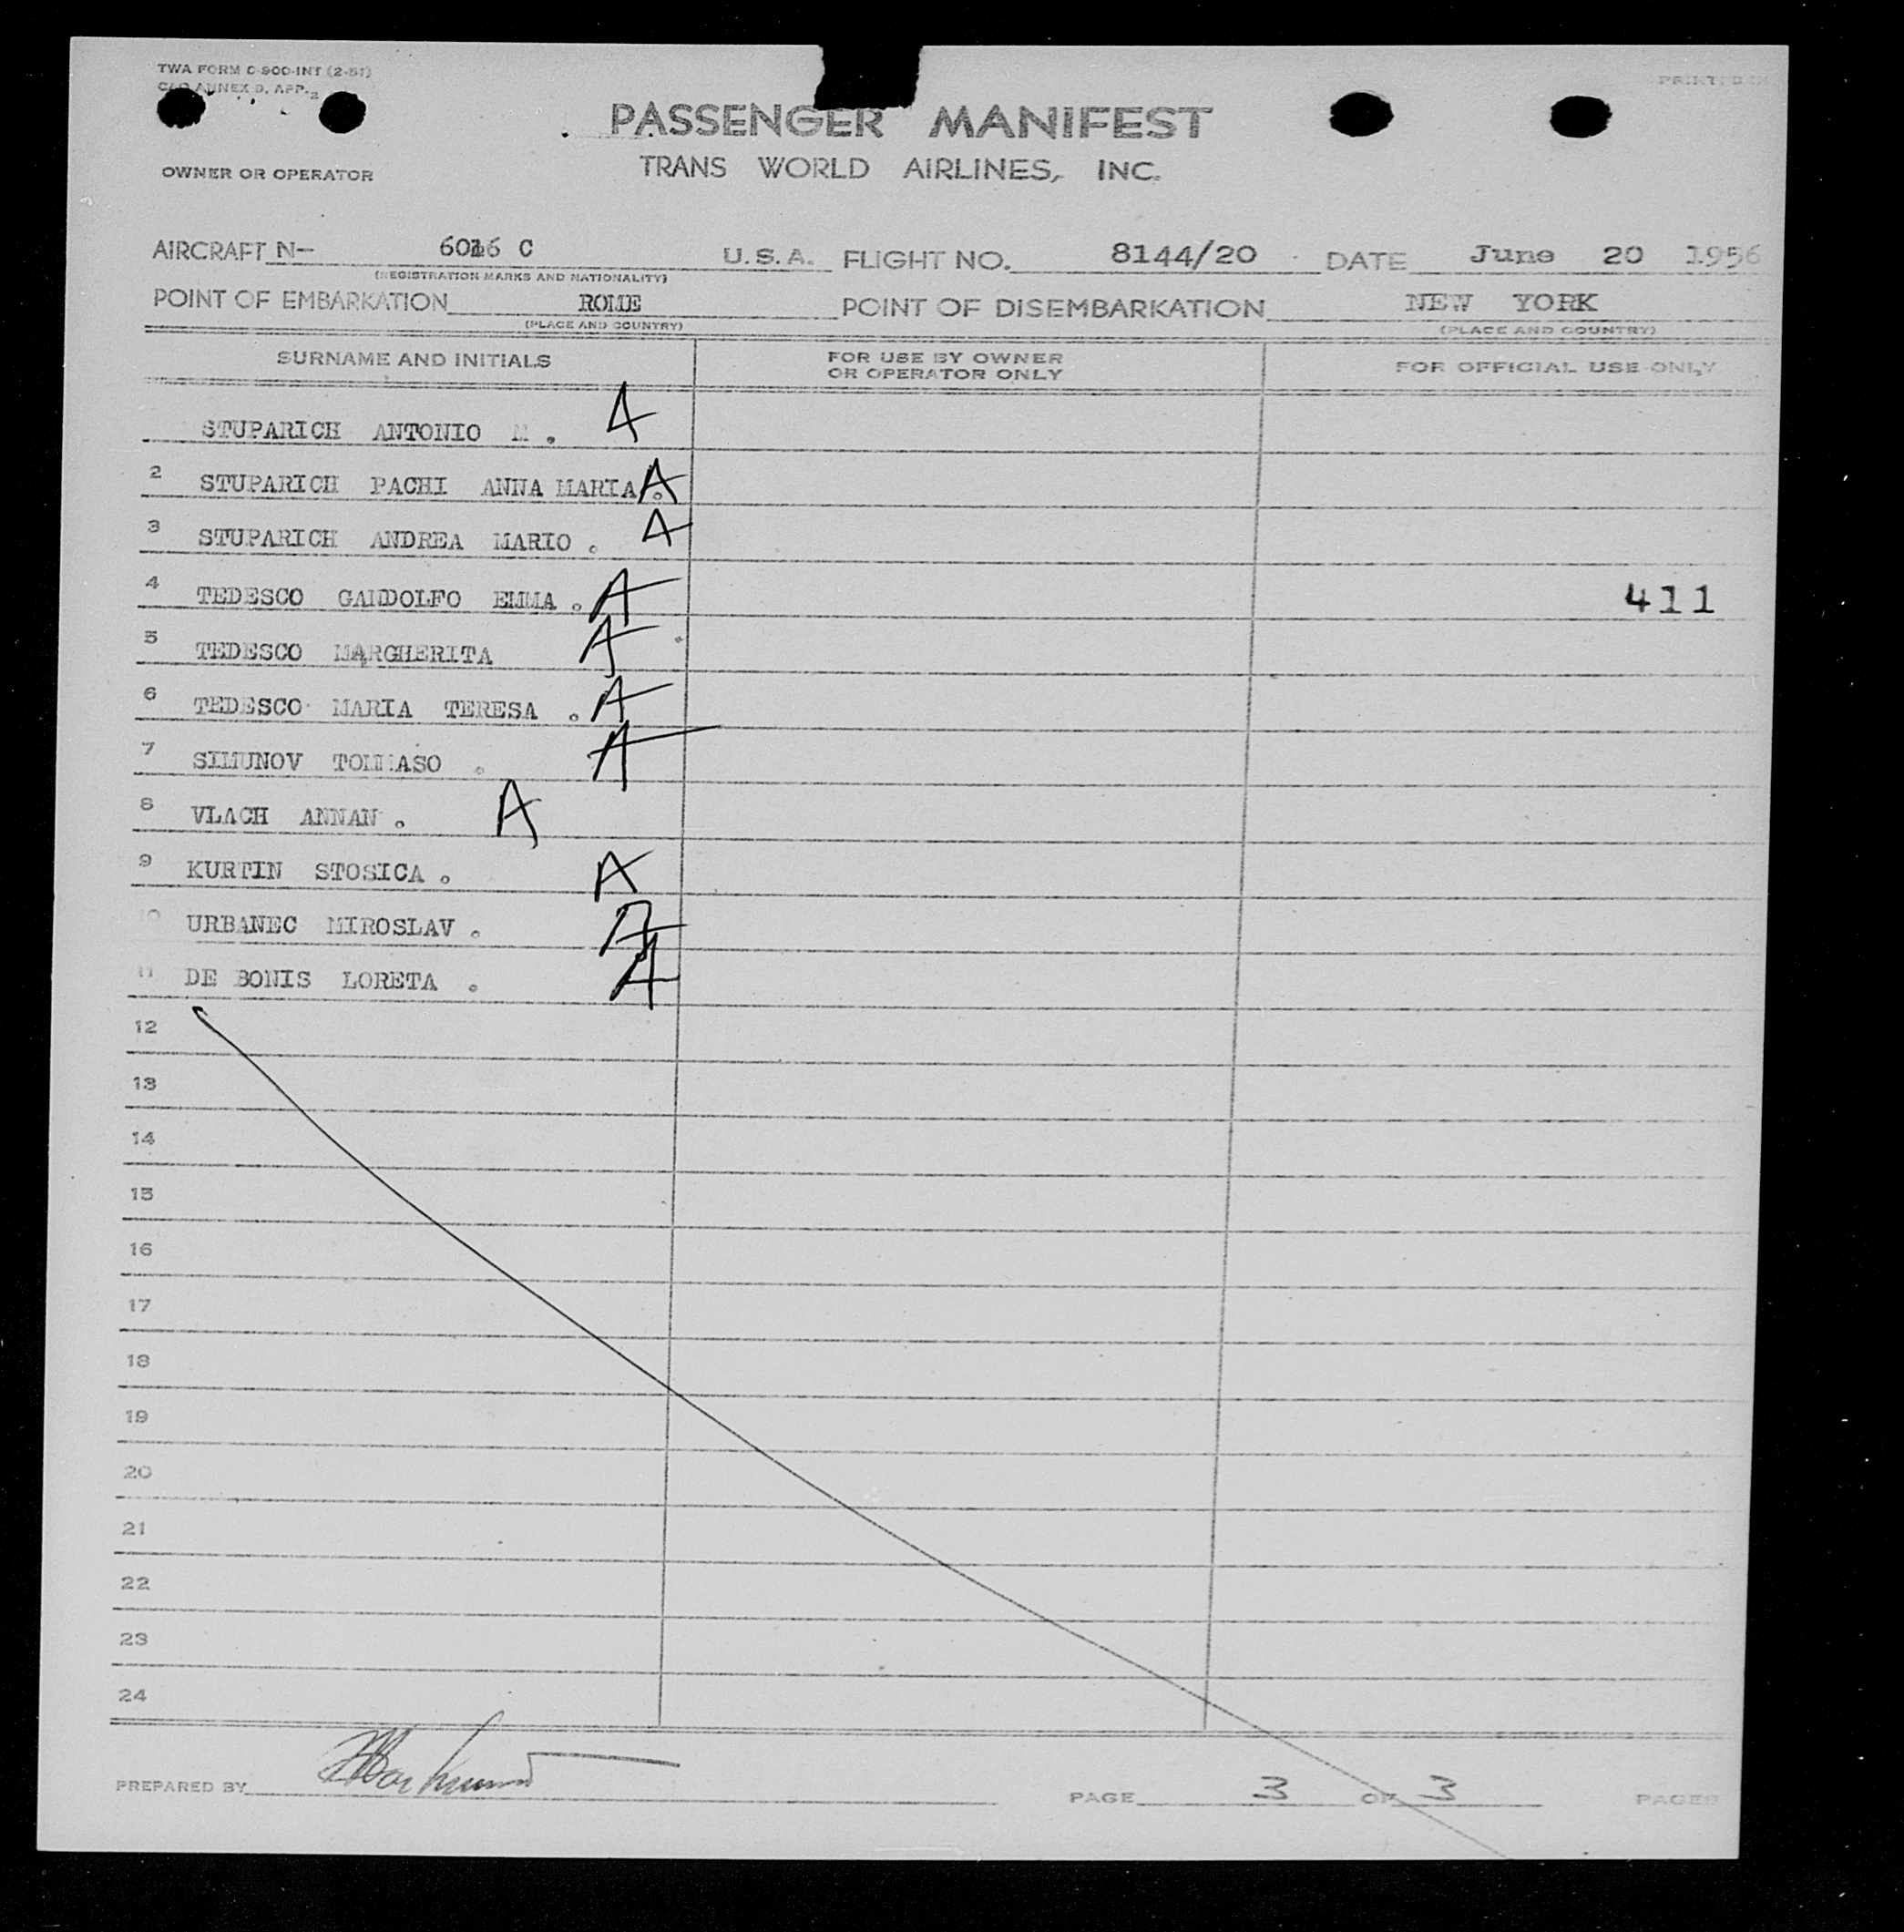 TWA FORM C-900-INT (2-51)
ANNEX 9, APP. 2
PRINTED IN
PASSENGER MANIFEST
OWNER OR OPERATOR TRANS WORLD AIRLINES, INC.
AIRCRAFT N- 6016 C U.S.A. FLIGHT NO. 8144/20 DATE June 20 1956
(REGISTRATION MARKS AND NATIONALITY)
POINT OF EMBARKATION ROME POINT OF DISEMBARKATION NEW YORK
(PLACE AND COUNTRY) (PLACE AND COUNTRY)
SURNAME AND INITIALS FOR USE BY OWNER OR OPERATOR ONLY FOR OFFICIAL USE ONLY
STUPARICH ANTONIO M. A
2 STUPARICH PACHI ANNA MARIA. A
3 STUPARICH ANDREA MARIO. A
4 TEDESCO GANDOLFO EMMA. A 411
5 TEDESCO MARGHERITA A
6 TEDESCO MARIA TERESA. A
7 SIMUNOV TOMMASO. A
8 VLACH ANNAN. A
9 KURTIN STOSICA. A
10 URBANEC MIROSLAV. A
11 DE BONIS LORETA. A
12
13
14
15
16
17
18
19
20
21
22
23
24
PREPARED BY PAGE 3 OF 3 PAGES